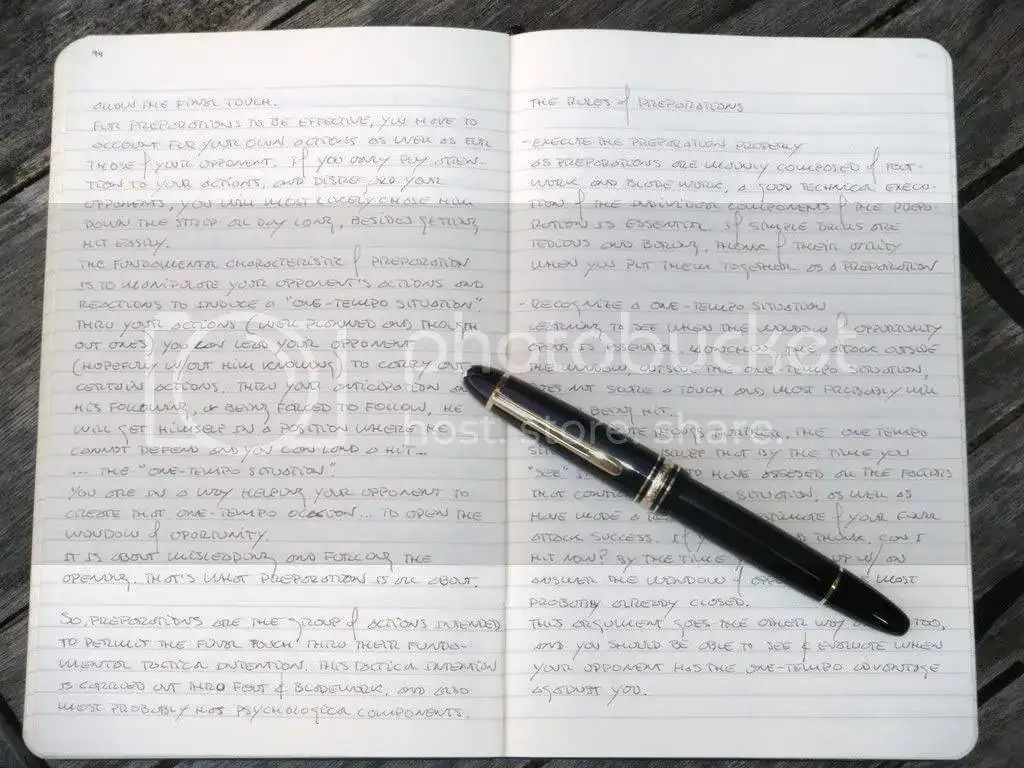 94
ALLOW THE FINAL TOUCH.
FOR PREPARATIONS TO BE EFFECTIVE, YOU HAVE TO
ACCOUNT FOR YOUR OWN ACTIONS AS WELL AS FOR
THOSE OF YOUR OPPONENT. IF YOU ONLY PAY ATEN-
TION TO YOUR ACTIONS, AND DISREGARD YOUR
OPPONENTS, YOU WILL MOST LIKELY CHASE HIM
DOWN THE STRIP ALL DAY LONG, BESIDES GETTING
HIT EASILY.
THE FUNDAMENTAL CHARACTERISTIC OF PREPARATION
IS TO MANIPULATE YOUR OPPONENT'S ACTIONS AND
REACTIONS TO INDUCE A "ONE-TEMPO SITUATION".
THRU YOUR ACTIONS (WELL PLANNED AND THOUGH
OUT ONES) YOU CAN LEAD YOUR OPPONENT
(HOPEFULLY W/OUT HIM KNOWING) TO CARRY OUT
CERTAIN ACTIONS. THRU YOUR ANTICIPATION
HIS FOLLOWING, BEING FORCED TO FOLLOW, HE
WILL GET HIMSELF IN A POSITION WHERE HE
CANNOT DEFEND AND YOU CAN LAND A HIT...
... THE "ONE-TEMPO SITUATION"
YOU ARE IN A WAY HELPING YOUR OPPONENT TO
CREATE THAT ONE-TEMPO OCASION... TO OPEN THE
WINDOW OF OPORTUNITY.
IT IS ABOUT MISLEADING AND FORCING THE
OPENING. THAT'S WHAT PREPARATION IS ALL ABOUT.
SO, PREPARATIONS ARE THE GROUP OF ACTIONS INTENDED
TO PERMIT THE FINAL TOUCH THRU THEIR FUNDA-
MENTAL TACTICAL INTENTION. THIS TACTICAL INTENTION
IS CARRIED OUT THRO FOOT & BLADEWORK, AND ALSO
MOST PROBABLY HAS PSYCHOLOGICAL COMPONENTS.
THE RULES OF PREPARATIONS
- EXECUTE THE PREPARATION PROPERLY
AS PREPARATIONS ARE MAINLY COMPOSED OF FOOT-
WORK AND BLADE WORK, A GOOD TECHNICAL EXECU-
TION OF THE INDIVIDUAL COMPONENTS OF THE PREPA-
RATION IS ESSENTIAL. IF SIMPLE DRILLS ARE
TEDIOUS AND BORING, THINK OF THEIR UTILITY
WHEN YOU PUT THEM TOGETHER AS A PREPARATION
- RECOGNIZE A ONE-TEMPO SITUATION
LEARNING TO SEE WHEN THE WINDOW OF OPPORTUNITY
OPENS IS ESSENTIAL. LAUNCHING THE ATTACK OUTSIDE
THE WINDOW, OUTSIDE THE ONE TEMPO SITUATION,
DOES NOT SCORE A TOUCH AND MOST PROBABLY WILL
BEING HIT.
THE ONE TEMPO
THAT BY THE TIME YOU
"SEE" IT TO HAVE ASSESED ALL THE FACTORS
THAT SITUATION, AS WELL AS
HAVE MADE A ESTIMATE OF YOUR FINAL
ATTACK SUCCESS. IF YOU AND THINK, CAN I
HIT NOW? BY THE TIME UP W/ AN
ANSWER THE WINDOW OF MOST
PROBABLY ALREADY CLOSED.
THIS ARGUMENT GOES THE OTHER WAY TOO,
AND YOU SHOULD BE ABLE TO SEE & EVALUATE WHEN
YOUR OPPONENT HAS THE ONE-TEMPO ADVANTAGE
AGAINST YOU.
photobucket
host. store. share.